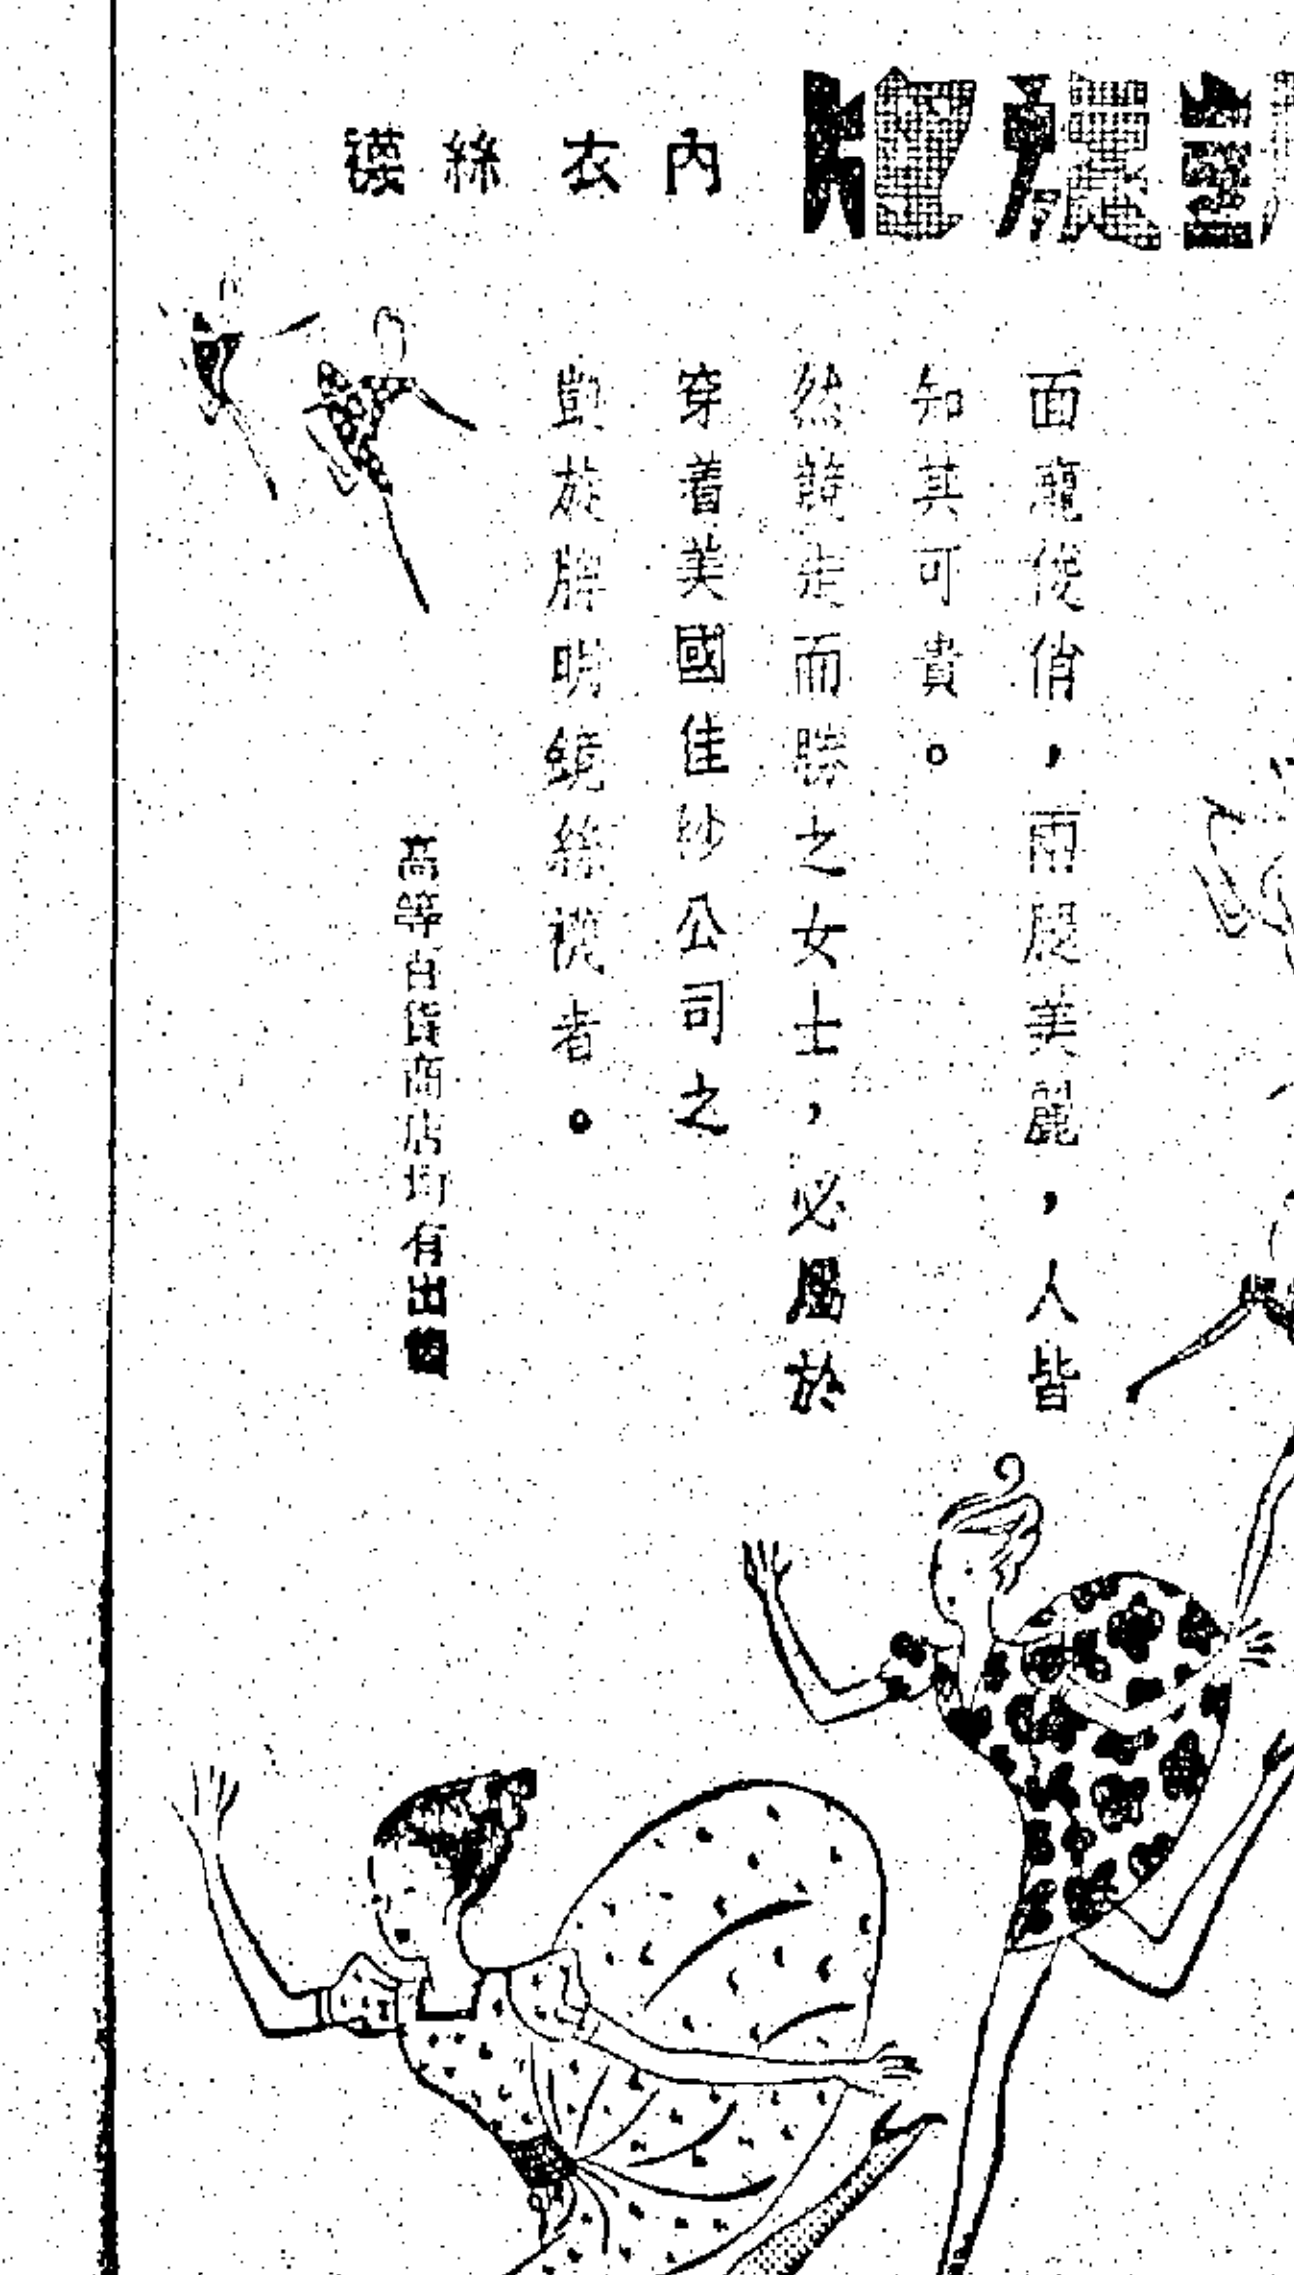 凱旋牌 內衣絲襪
面龐俊俏，兩腿美麗，人皆
知其可貴。
然競走而勝之女士，必屬於
穿着美國佳紗公司之
凱旋牌明鏡絲襪者。
高等百貨商店均有出售